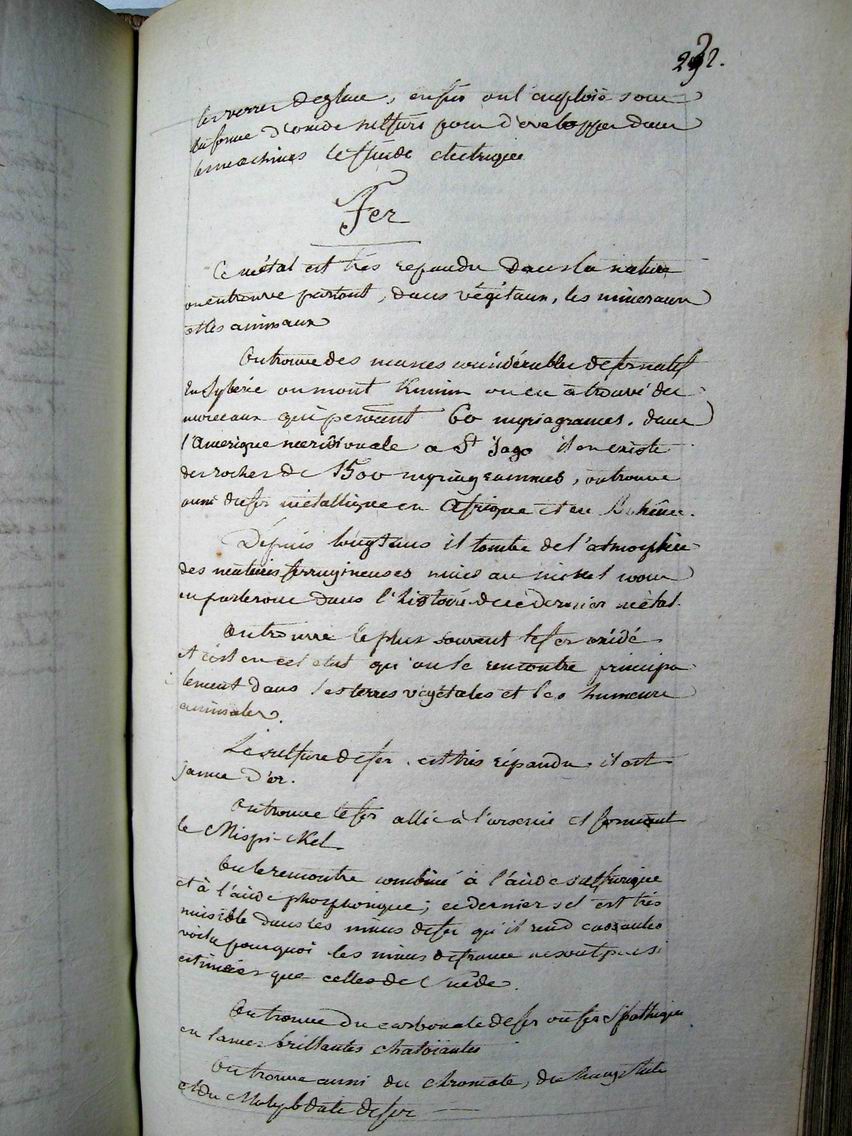 292.
les verres de glace, enfin on l'emploie sous
la forme d'oxide sulfuré pour développer dans
les machines le fluide electrique
Fer
Ce métal est très repandu dans la nature
on en trouve partout, dans végétaux, les mineraux
et les animaux
On trouve des masses considérables de fer natif
En Syberie au mont on en a trouvé des
morceaux qui pesaient 60 myriagrames. dans
l'Amerique meridionale a St Jago il en existe
des rocher de 1500 myriagrammes, on trouve
aussi du fer métallique en Afrique et en Bohême.
Depuis longtems il tombe de l'atmosphère
des matières ferrugineuses unies au nickel nous
en parlerons dans l'histoire de ce dernier métal.
On trouve le plus souvent le fer oxidé
et c'est en cet etat qu'on le rencontre principa
lement dans les terres végétales et les humeurs
animales.
Le sulfure de fer est très répandu il est
jaune d'or.
On trouve le fer allié à l'arsenic et formant
le Mispickel
On le rencontre combiné à l'acide sulfurique
et à l'acide phosphorique; ce dernier sel est très
nuisible dans les mines de fer qu'il rend cassantes
voila pourquoi les mines de france ne sont pas si
estimées que celles de Suède.
On trouve du carbonate de fer ou fer spathique
en lames brillantes chatoiantes
On trouve aussi du chromate, du tungstate
et du Molybdate de fer